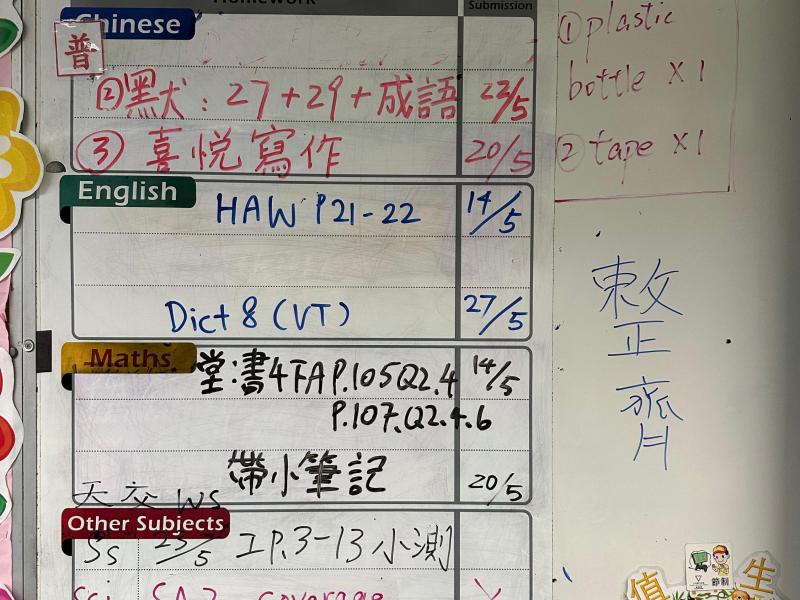 Homework
Submission
Chinese
普
②黑犬:27+29+成語 22/5
③ 喜悅寫作 20/5
English
HAW P21-22 14/5
Dict 8 (VT) 27/5
Maths
堂:書4下A P.105 Q2.4 14/5
P.107.Q2.4.6
帶小筆記 20/5
天交 WS
Other Subjects
SS 23/5 工P.3-13小測
Sci SA2 coverage
① plastic
bottle X 1
② tape X 1
整
齊
節制
值
生